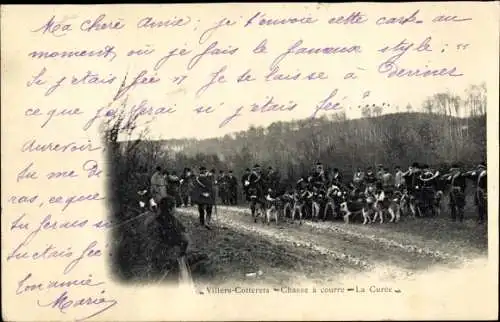 Ma chère Amie ; je t'envoie cette carte au
moment où je fais le fameux style ; "
Si j'étais fée" je te laisse à deviner
ce que je ferai si j'étais fée !
Aurevoir.
Tu me di
ras ce que
tu ferais si
tu étais fée
Ton amie
Marie
Villers-Cotterets — Chasse à courre — La Curée